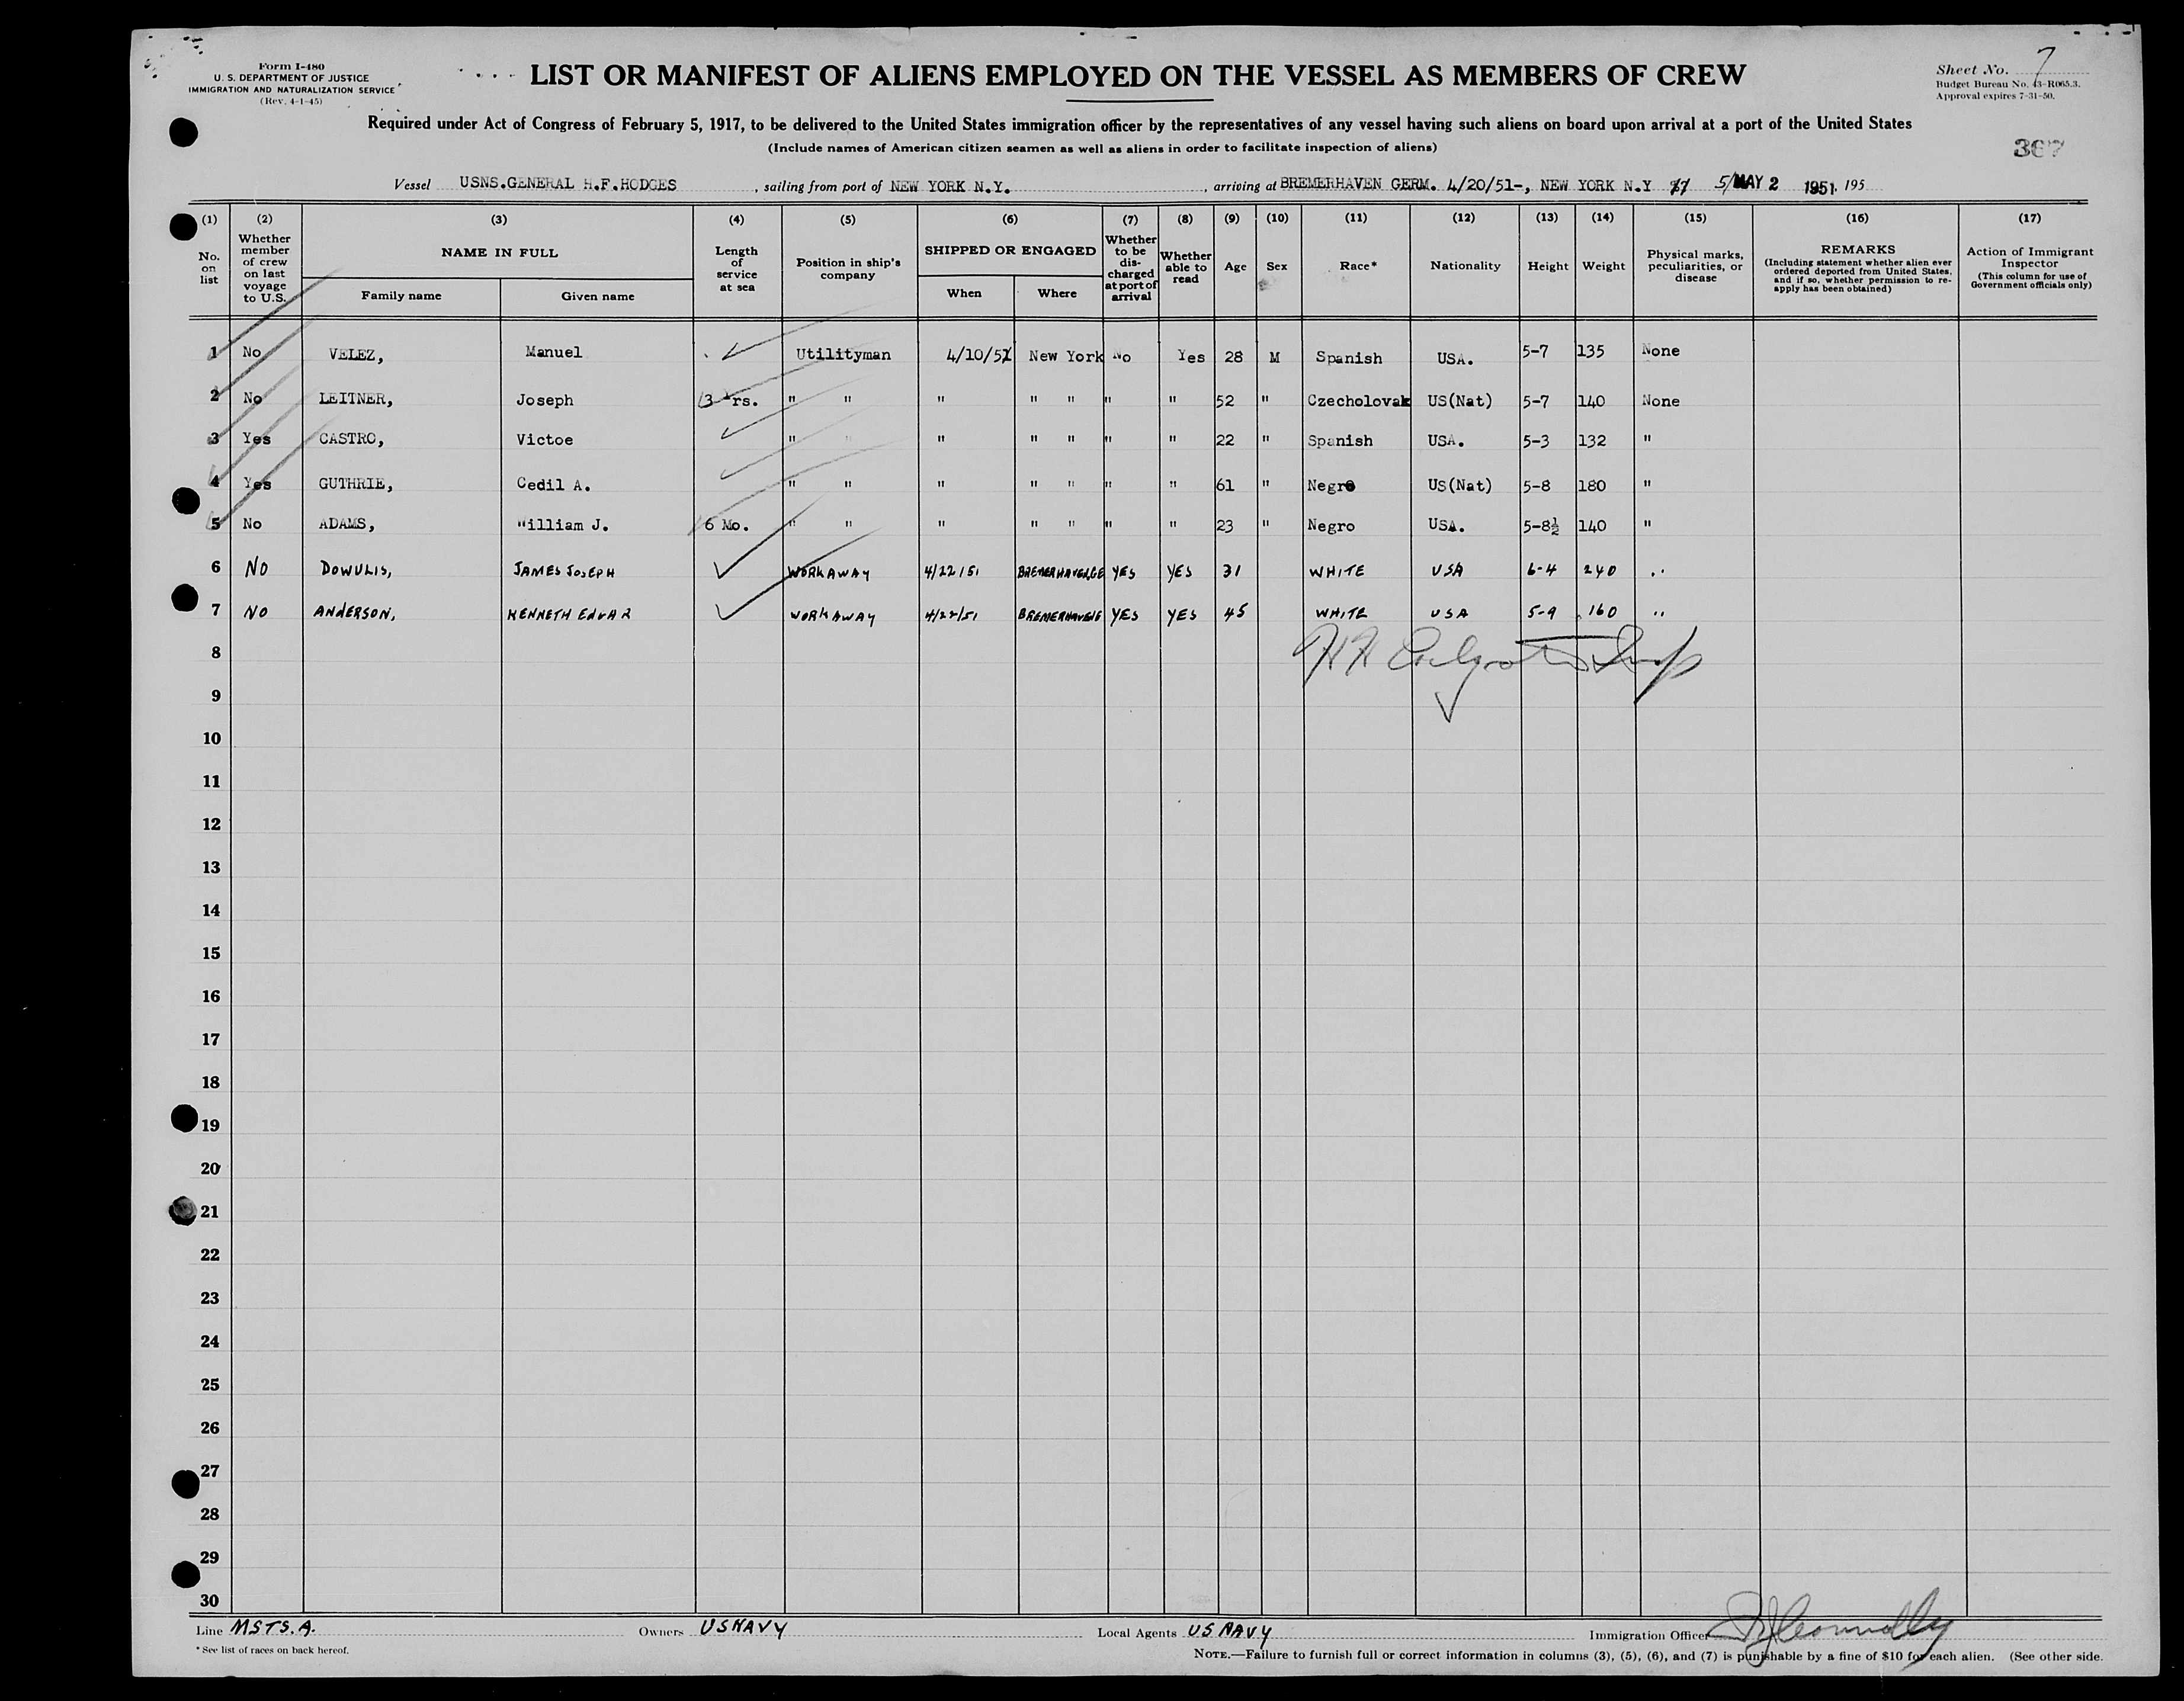 Form I-480
U. S. DEPARTMENT OF JUSTICE
IMMIGRATION AND NATURALIZATION SERVICE
(Rev. 4-1-45)
LIST OR MANIFEST OF ALIENS EMPLOYED ON THE VESSEL AS MEMBERS OF CREW
Sheet No. 7
Budget Bureau No. 43-R065.3.
Approval expires 7-31-50.
Required under Act of Congress of February 5, 1917, to be delivered to the United States immigration officer by the representatives of any vessel having such aliens on board upon arrival at a port of the United States
(Include names of American citizen seamen as well as aliens in order to facilitate inspection of aliens)
367
Vessel USNS.GENERAL H.F.HODGES , sailing from port of NEW YORK N.Y. , arriving at BREMERHAVEN GERM. 4/20/51-, NEW YORK N.Y 5/ MAY 2 1951. 195
(1) (2) (3) (4) (5) (6) (7) (8) (9) (10) (11) (12) (13) (14) (15) (16) (17)
No. on list
Whether member of crew on last voyage to U.S.
NAME IN FULL
Family name Given name
Length of service at sea
Position in ship's company
SHIPPED OR ENGAGED
When Where
Whether to be discharged at port of arrival
Whether able to read
Age Sex Race* Nationality Height Weight
Physical marks, peculiarities, or disease
REMARKS
(Including statement whether alien ever ordered deported from United States, and if so, whether permission to re-apply has been obtained)
Action of Immigrant Inspector
(This column for use of Government officials only)
1 No VELEZ, Manuel Utilityman 4/10/51 New York No Yes 28 M Spanish USA. 5-7 135 None
2 No LEITNER, Joseph 3 Yrs. " " " " " " " 52 " Czecholovak US(Nat) 5-7 140 None
3 Yes CASTRO, Victoe " " " " " " " 22 " Spanish USA. 5-3 132 "
4 Yes GUTHRIE, Cedil A. " " " " " " " 61 " Negro US(Nat) 5-8 180 "
5 No ADAMS, William J. 6 Mo. " " " " " " " 23 " Negro USA. 5-8½ 140 "
6 NO DOWULIS, JAMES JOSEPH WORKAWAY 4/22/51 BREMERHAVEN,GE YES YES 31 WHITE USA 6-4 240 "
7 NO ANDERSON, KENNETH EDGAR WORKAWAY 4/22/51 BREMERHAVEN YES YES 45 WHITE USA 5-9 160 "
8
9
10
11
12
13
14
15
16
17
18
19
20
21
22
23
24
25
26
27
28
29
30
Line MSTS.A. Owners US NAVY Local Agents US NAVY Immigration Officer
* See list of races on back hereof.
NOTE.—Failure to furnish full or correct information in columns (3), (5), (6), and (7) is punishable by a fine of $10 for each alien. (See other side.